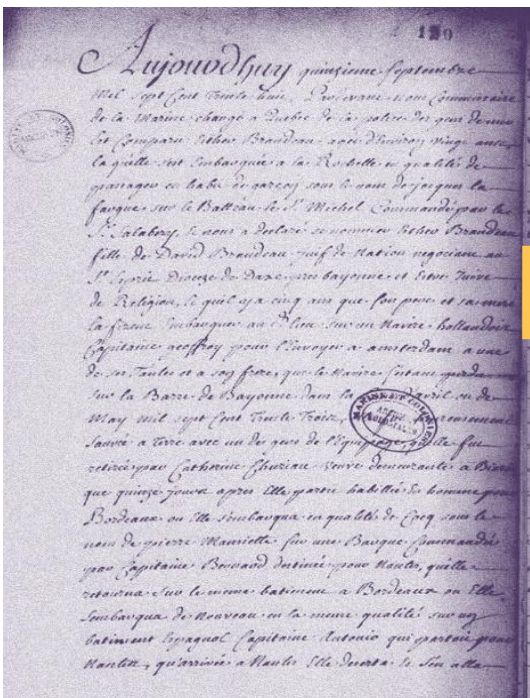 190
Aujourdhuy quinzieme Septembre
Mil Sept Cent Trente huit, Pardevant nous Commissaire
de la Marine chargé a Quebec de la police des gens de mer
Est Comparu Esther Brandeau agée d'Environ vingt ans
la quelle s'est Embarquée a la Rochelle en qualité de
passager en habit de garçon sous le nom de jacques la
fargue sur le Batteau le St. Michel Commandé par le
Sr. Salabery, Et nous a declaré se nommer Esther Brandeau
fille de David Brandeau Juif de Nation negociant au
St. Esprit Dioceze de Daxe pres bayonne et Estre Juive
de Religion, Et quil y a cinq ans que son pere et sa mere
la firent Embarquer au d. lieu sur un Navire hollandois
Capitaine geoffroy pour l'Envoyer a amsterdam a une
de ses Tantes et a son frere, que le Navire s'étant perdu
Sur la Barre de Bayonne dans la d'avril ou de
May mil sept Cent Trente Trois, heureusement
Sauvée a Terre avec un des gens de l'Equipage, quelle fut
retirée par Catherine Churiau veuve demeurante a
que quinze jours apres Elle partit habillée En homme pour
Bordeaux ou Elle s'embarqua en qualité de Cocq sous le
nom de pierre Mausiette sur une Barque Commandée
par Capitaine Bernard destinée pour Nantes, quelle
retourna sur le meme batiment a Bordeaux ou Elle
s'embarqua de Nouveau en la meme qualité sur un
batiment Espagnol Capitaine Antonio qui partoit pour
Nantes, qu'arrivée a Nantes Elle deserta Et s'en alla
MARINE ET COLONIES